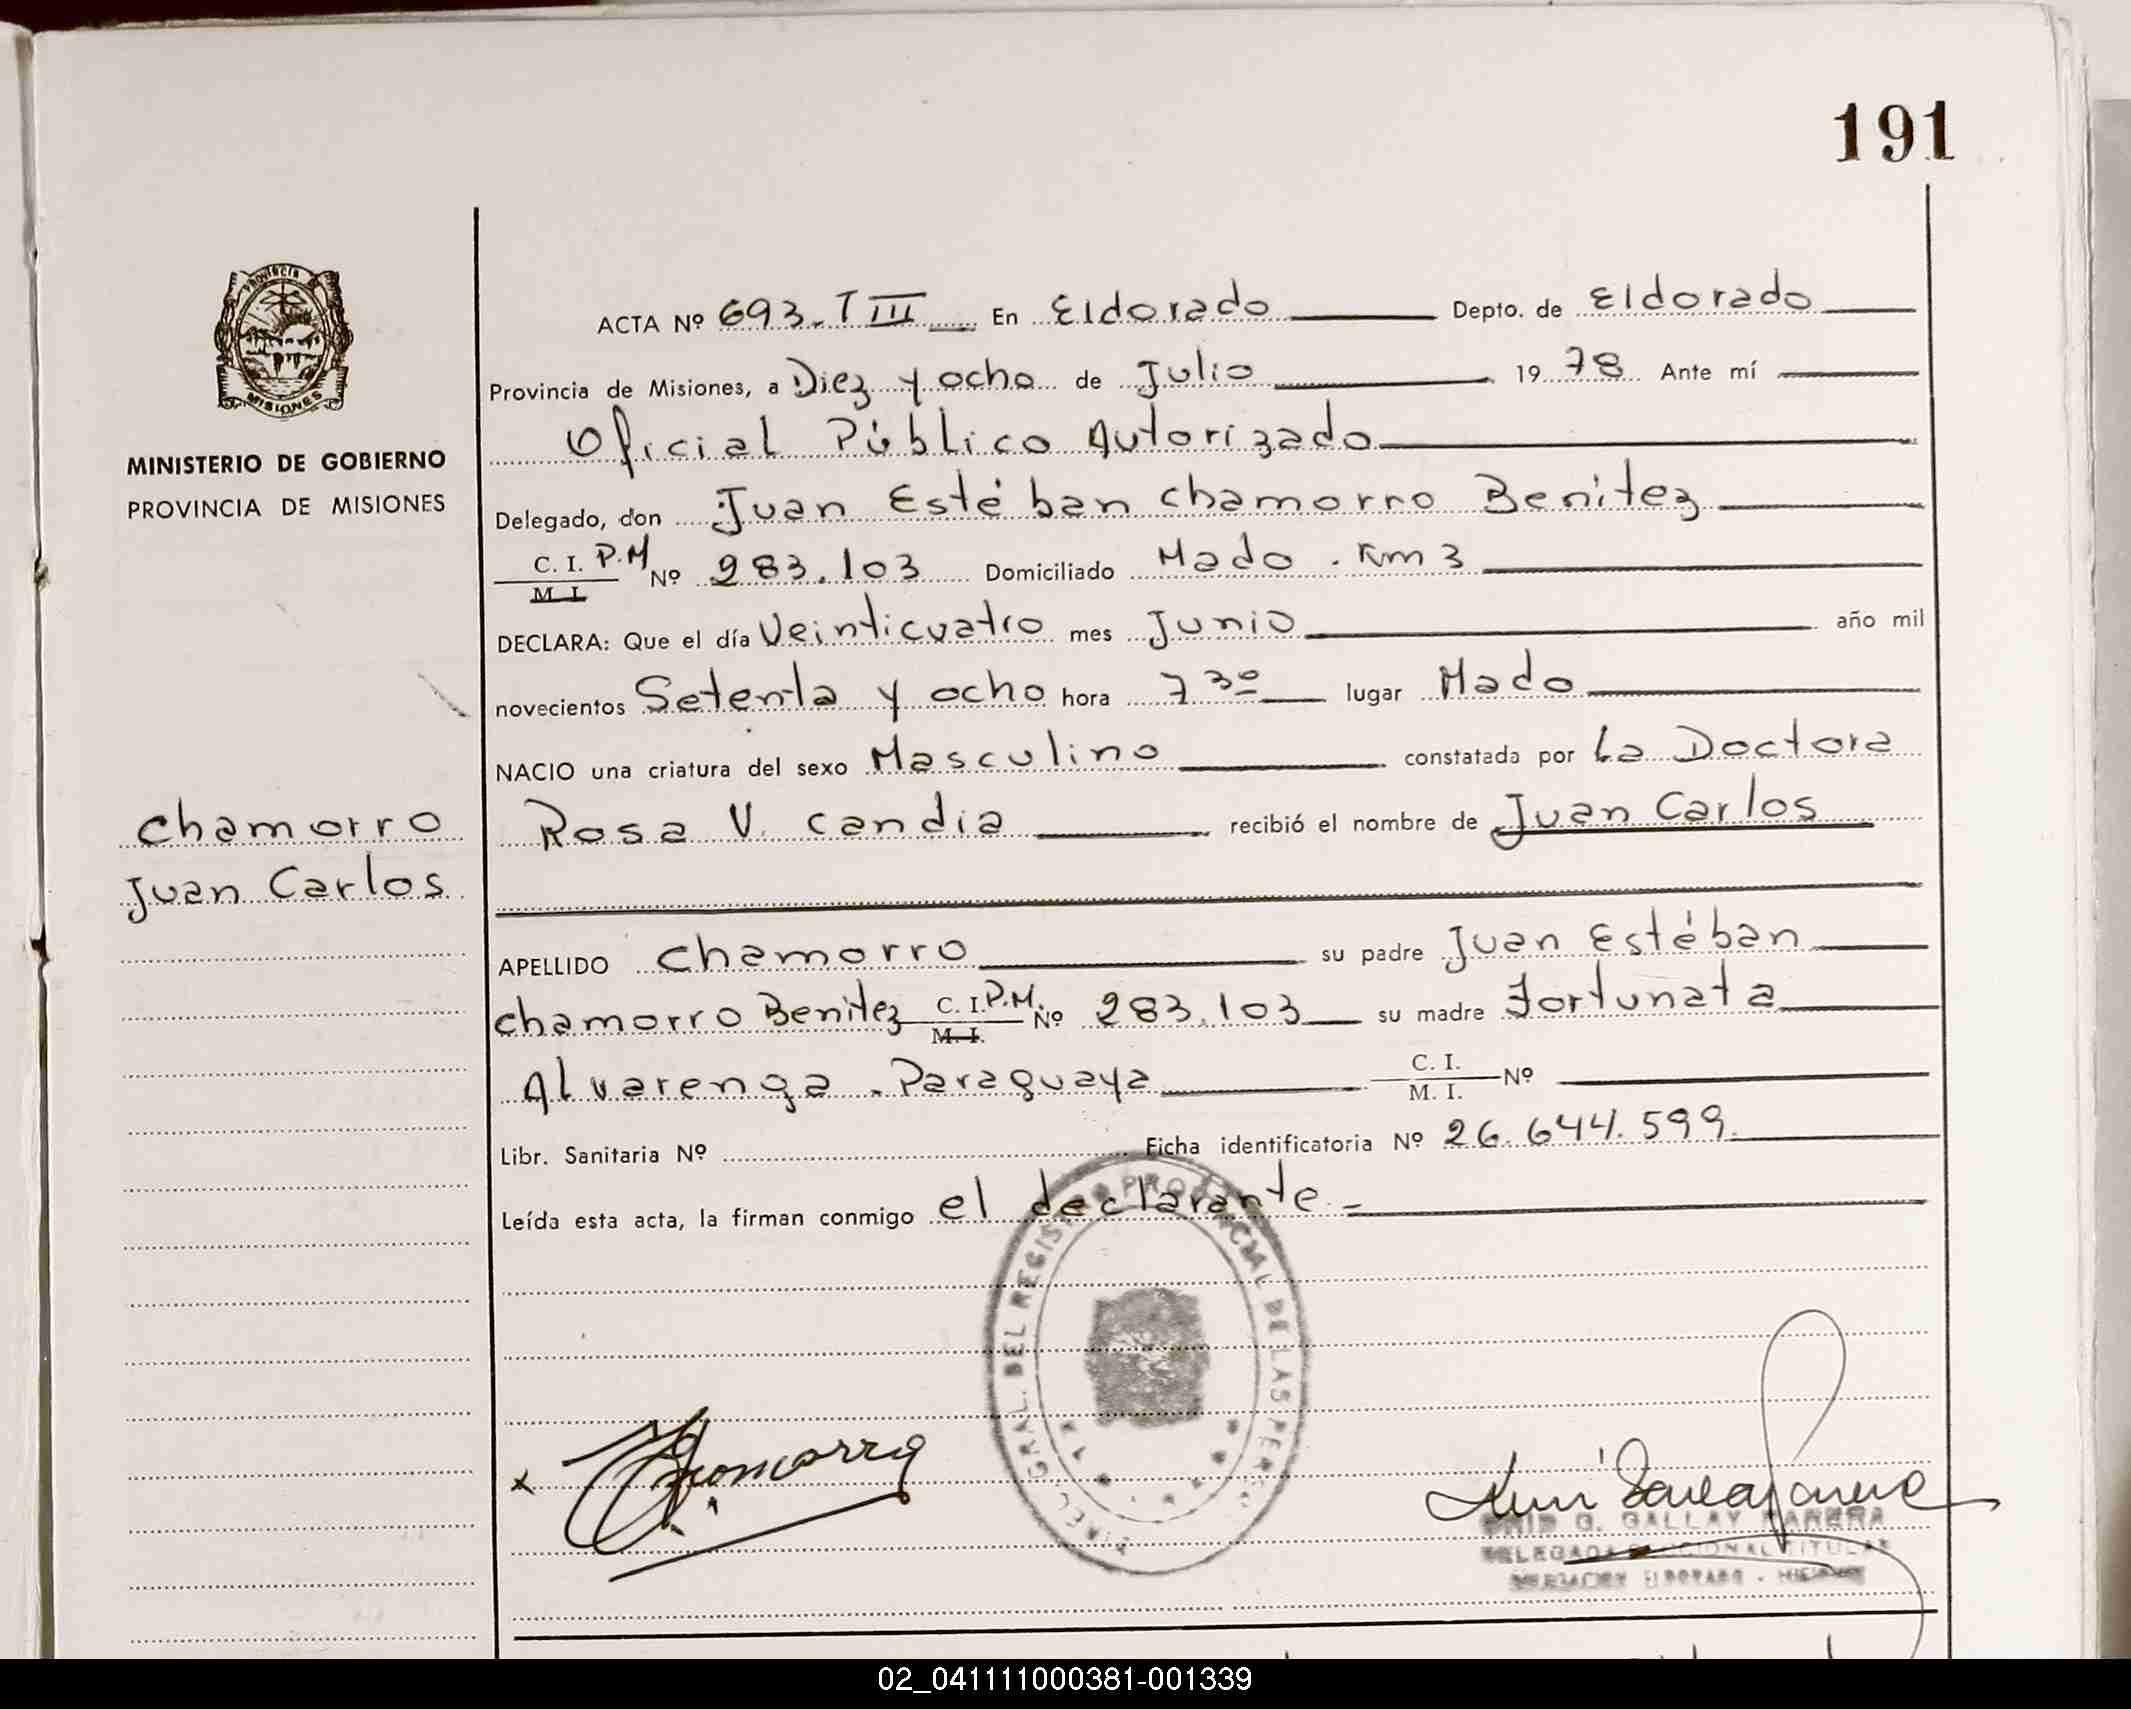 191
Provincia
MISIONES
MINISTERIO DE GOBIERNO
PROVINCIA DE MISIONES
Chamorro
Juan Carlos
ACTA Nº 693. T III En Eldorado Depto. de Eldorado
Provincia de Misiones, a Diez y ocho de Julio 19 78 Ante mí
Oficial Público Autorizado
Delegado, don Juan Estéban Chamorro Benitez
C. I. P.M Nº 283.103 Domiciliado Mado . Km 3
M. I.
DECLARA: Que el día Veinticuatro mes Junio año mil
novecientos Setenta y ocho hora 7 30 lugar Mado
NACIO una criatura del sexo Masculino constatada por La Doctora
Rosa V. Candia recibió el nombre de Juan Carlos
APELLIDO Chamorro su padre Juan Estéban
Chamorro Benitez C. I. P.M. Nº 283.103 su madre Fortunata
M. I.
Alvarenga . Paraguaya C. I. Nº
M. I.
Libr. Sanitaria Nº Ficha identificatoria Nº 26.644.599.
Leída esta acta, la firman conmigo el declarante. -
GRAL. DEL REGIS PRO CIAL DE LAS PERS
x
G. GALLAY PARERA
DELEGADA SECCIONAL TITULAR
ELDORADO
02_041111000381-001339